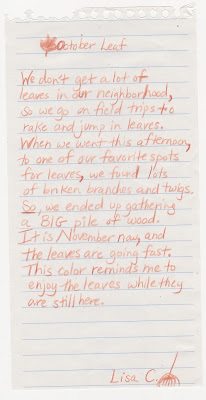 October Leaf
We don't get a lot of
leaves in our neighborhood,
so we go on field trips to
rake and jump in leaves.
When we went this afternoon,
to one of our favorite spots
for leaves, we found lots
of broken branches and twigs.
So, we ended up gathering
a BIG pile of wood.
It is November now, and
the leaves are going fast.
This color reminds me to
enjoy the leaves while they
are still here.
Lisa C.